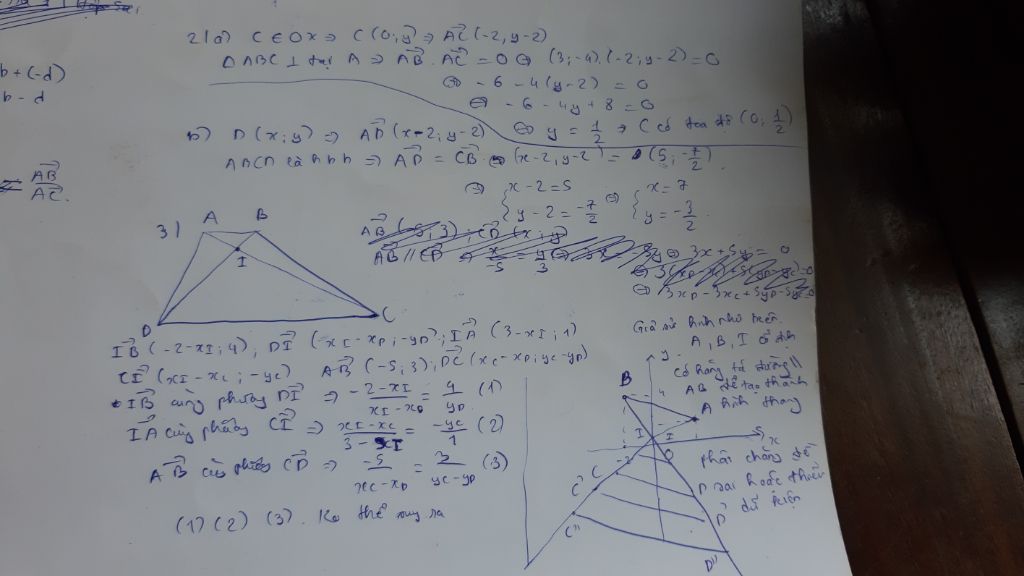 b + (-d)
b - d
= AB/AC.
2/a) C ∈ Ox ⇒ C (0; y) ⇒ AC (-2, y-2)
Δ ABC ⊥ tại A ⇒ AB . AC = 0 ⇔ (3; -4).(-2; y-2) = 0
⇔ -6 - 4(y-2) = 0
⇔ -6 - 4y + 8 = 0
⇔ y = 1/2 ⇒ C có tọa độ (0; 1/2)
b) D (x; y) ⇒ AD (x-2; y-2)
ABCD là hbh ⇒ AD = CB ⇔ (x-2, y-2) = (5; -7/2).
⇔ { x-2 = 5 ⇔ { x = 7
{ y-2 = -7/2 { y = -3/2.
3)
A B
I
D C
AB (-5, 3), CD (x; y)
AB // CD ⇒ x/-5 = y/3
3x + 5y = 0
⇔ 3xD - 3xC + 5yD - 5yC = 0
IB (-2-xI; 4); DI (xI - xD; -yD); IA (3-xI; 1)
CI (xI - xC; -yC) AB (-5; 3); DC (xC - xD; yC - yD)
IB cùng phương DI ⇒ -2-xI/xI-xD = 4/yD (1)
IA cùng phương CI ⇒ xI-xC/3-xI = -yC/1 (2)
AB cùng phương CD ⇒ -5/xC-xD = 3/yC-yD (3)
(1) (2) (3). Ko thể suy ra
Giả sử hình như trên.
A, B, I cố định
Có hằng tá đường //
AB để tạo thành
hình thang
phải chăng đề
sai hoặc thiếu
dữ kiện
y
B 4
A
I I
-2 O 5 x
C D
C' D'
C'' D''